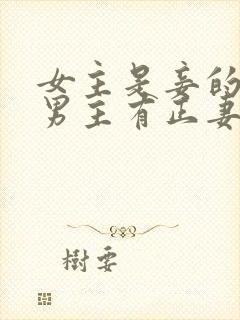 女主是妾的
男主有正妻
樹要